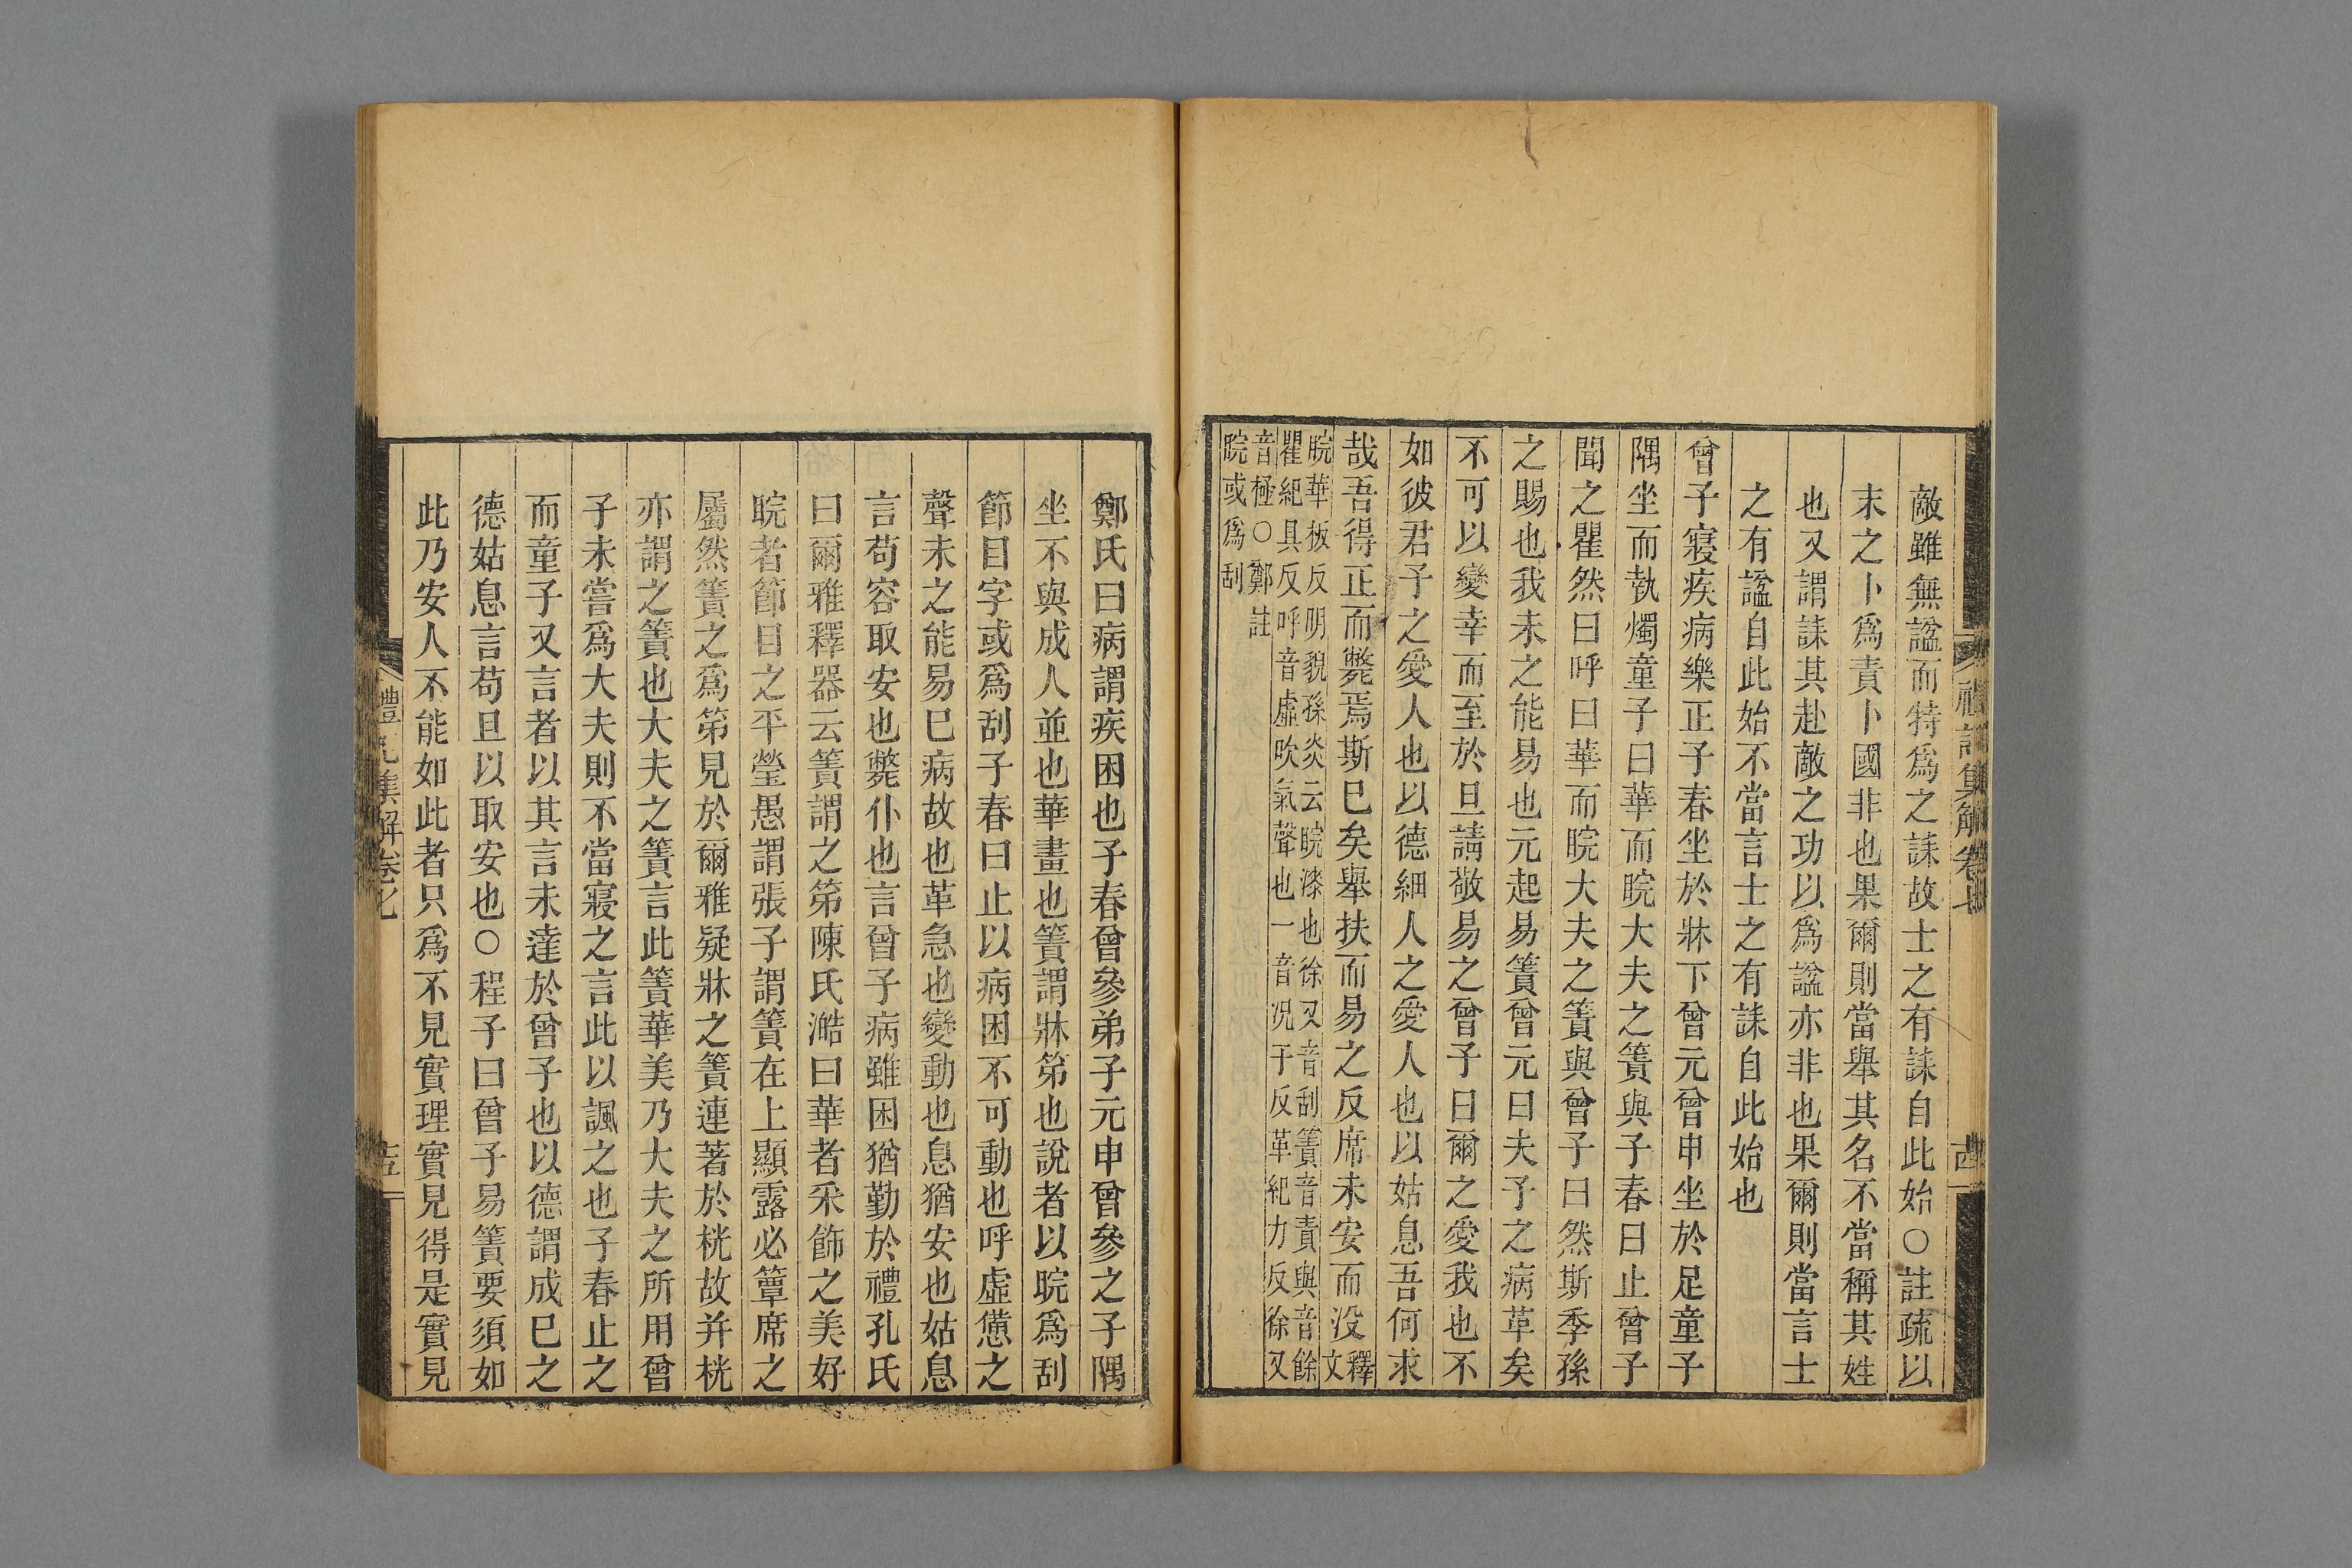 敵雖無諡而特爲之誄故士之有誄自此始○註疏以
末之卜爲責卜國非也果爾則當舉其名不當稱其姓
也又謂誄其赴敵之功以爲諡亦非也果爾則當言士
之有諡自此始不當言士之有誄自此始也
曾子寢疾病樂正子春坐於牀下曾元曾申坐於足童子
隅坐而執燭童子曰華而睆大夫之簀與子春曰止曾子
聞之瞿然曰呼曰華而睆大夫之簀與曾子曰然斯季孫
之賜也我未之能易也元起易簀曾元曰夫子之病革矣
不可以變幸而至於旦請敬易之曾子曰爾之愛我也不
如彼君子之愛人也以德細人之愛人也以姑息吾何求
哉吾得正而斃焉斯已矣舉扶而易之反席未安而没釋文
睆華板反明貌孫炎云睆漆也徐又音刮簀音責與音餘
瞿紀具反呼音虛吹氣聲也一音况于反革紀力反徐又
音極○鄭註
睆或爲刮
禮記集解卷七
十四
鄭氏曰病謂疾困也子春曾參弟子元申曾參之子隅
坐不與成人並也華畫也簀謂牀笫也說者以睆爲刮
節目字或爲刮子春曰止以病困不可動也呼虛憊之
聲未之能易已病故也革急也變動也息猶安也姑息
言苟容取安也斃仆也言曾子病雖困猶勤於禮孔氏
曰爾雅釋器云簀謂之笫陳氏澔曰華者采飾之美好
睆者節目之平瑩愚謂張子謂簀在上顯露必簟席之
屬然簀之爲笫見於爾雅疑牀之簀連著於桄故并桄
亦謂之簀也大夫之簀言此簀華美乃大夫之所用曾
子未嘗爲大夫則不當寢之言此以諷之也子春止之
而童子又言者以其言未達於曾子也以德謂成已之
德姑息言苟且以取安也○程子曰曾子易簀要須如
此乃安人不能如此者只爲不見實理實見得是實見
禮記集解卷七
十五